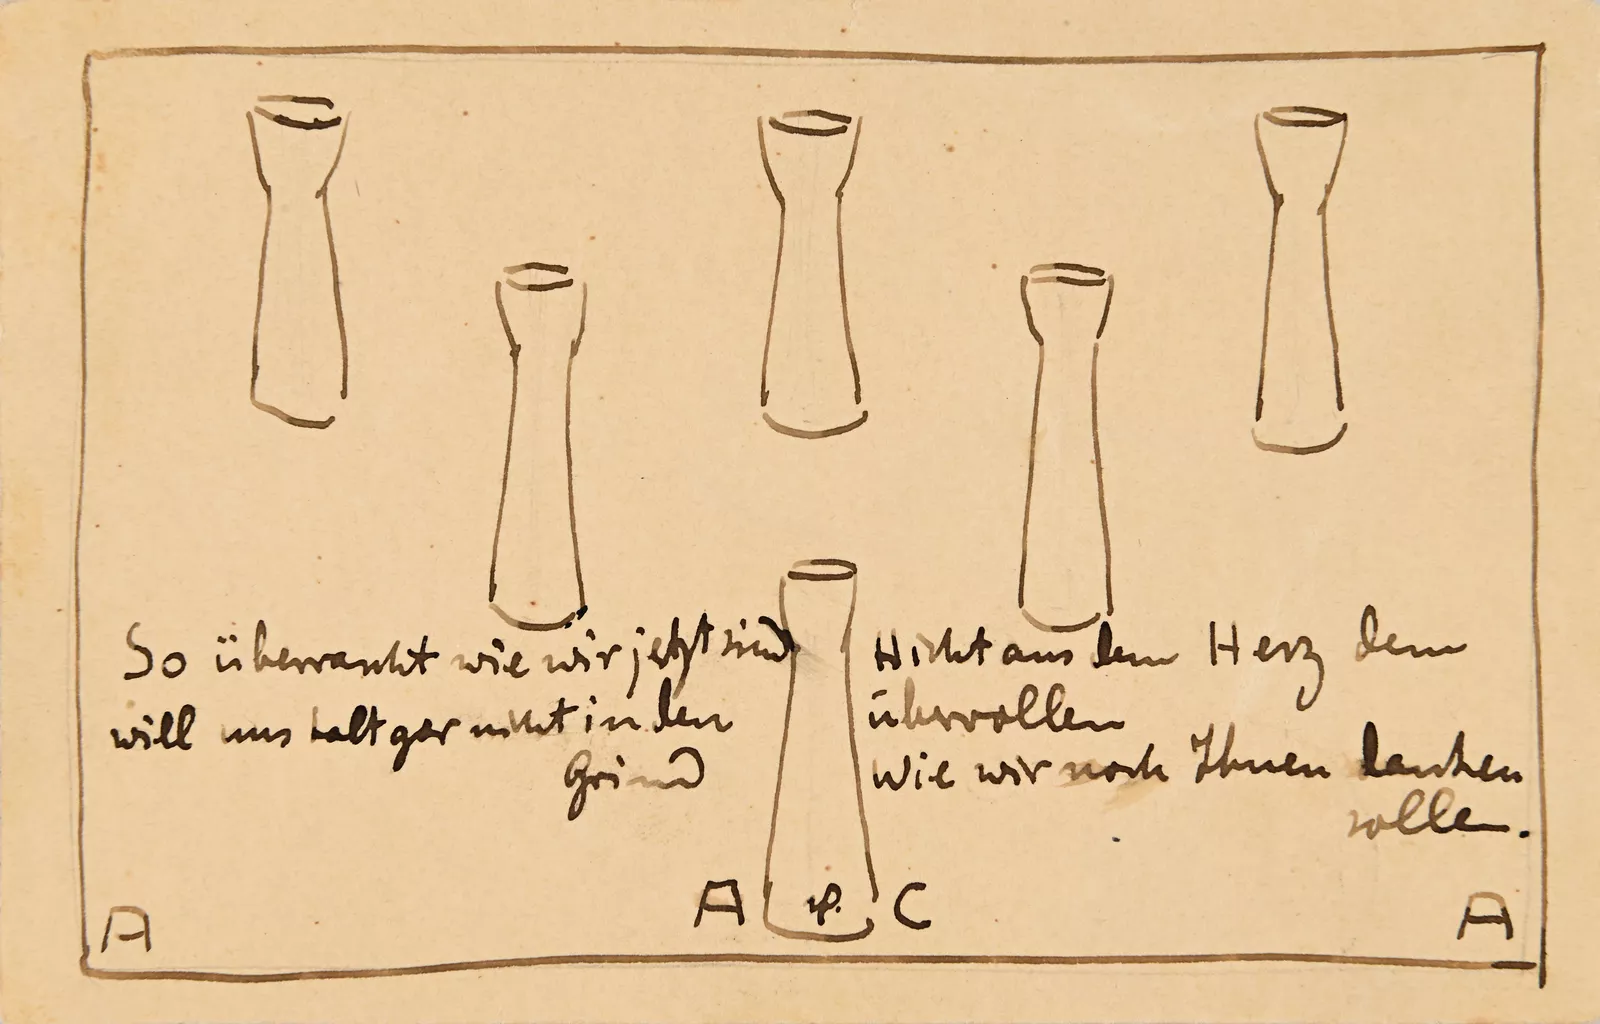 So überrascht wie wir jetzt sind
will uns halt gar nicht in den
Grind
Nicht aus dem Herz dem
übervollen
wie wir noch Ihnen danken
sollen.
A
A u. C
A